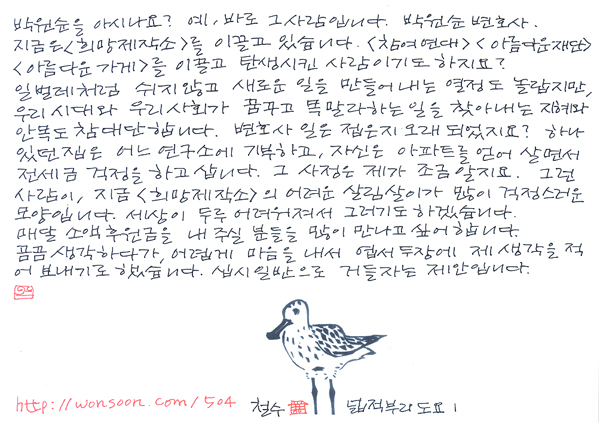 박원순을 아시나요? 예, 바로 그 사람입니다. 박원순 변호사.
지금은 <희망제작소>를 이끌고 있습니다. <참여연대> <아름다운재단>
<아름다운 가게>를 이끌고 탄생시킨 사람이기도 하지요?
일벌레처럼 쉬지 않고 새로운 일을 만들어 내는 열정도 놀랍지만,
우리 시대와 우리 사회가 꿈꾸고 목말라하는 일을 찾아내는 지혜와
안목도 참 대단합니다. 변호사 일은 접은지 오래 되었지요? 하나
있던 집은 어느 연구소에 기부하고, 자신은 아파트를 얻어 살면서
전세금 걱정을 하고 삽니다. 그 사정은 제가 조금 알지요. 그런
사람이, 지금 <희망제작소>의 어려운 살림살이가 많이 걱정스러운
모양입니다. 세상이 두루 어려워져서 그러기도 하겠습니다.
매달 소액후원금을 내 주실 분들을 많이 만나고 싶어합니다.
곰곰 생각하다가, 어렵게 마음을 내서 엽서 두장에 제 생각을 적
어 보내기로 했습니다. 십시일반으로 거들자는 제안입니다.
http://wonsoon.com/504 철수 넓적부리도요 1